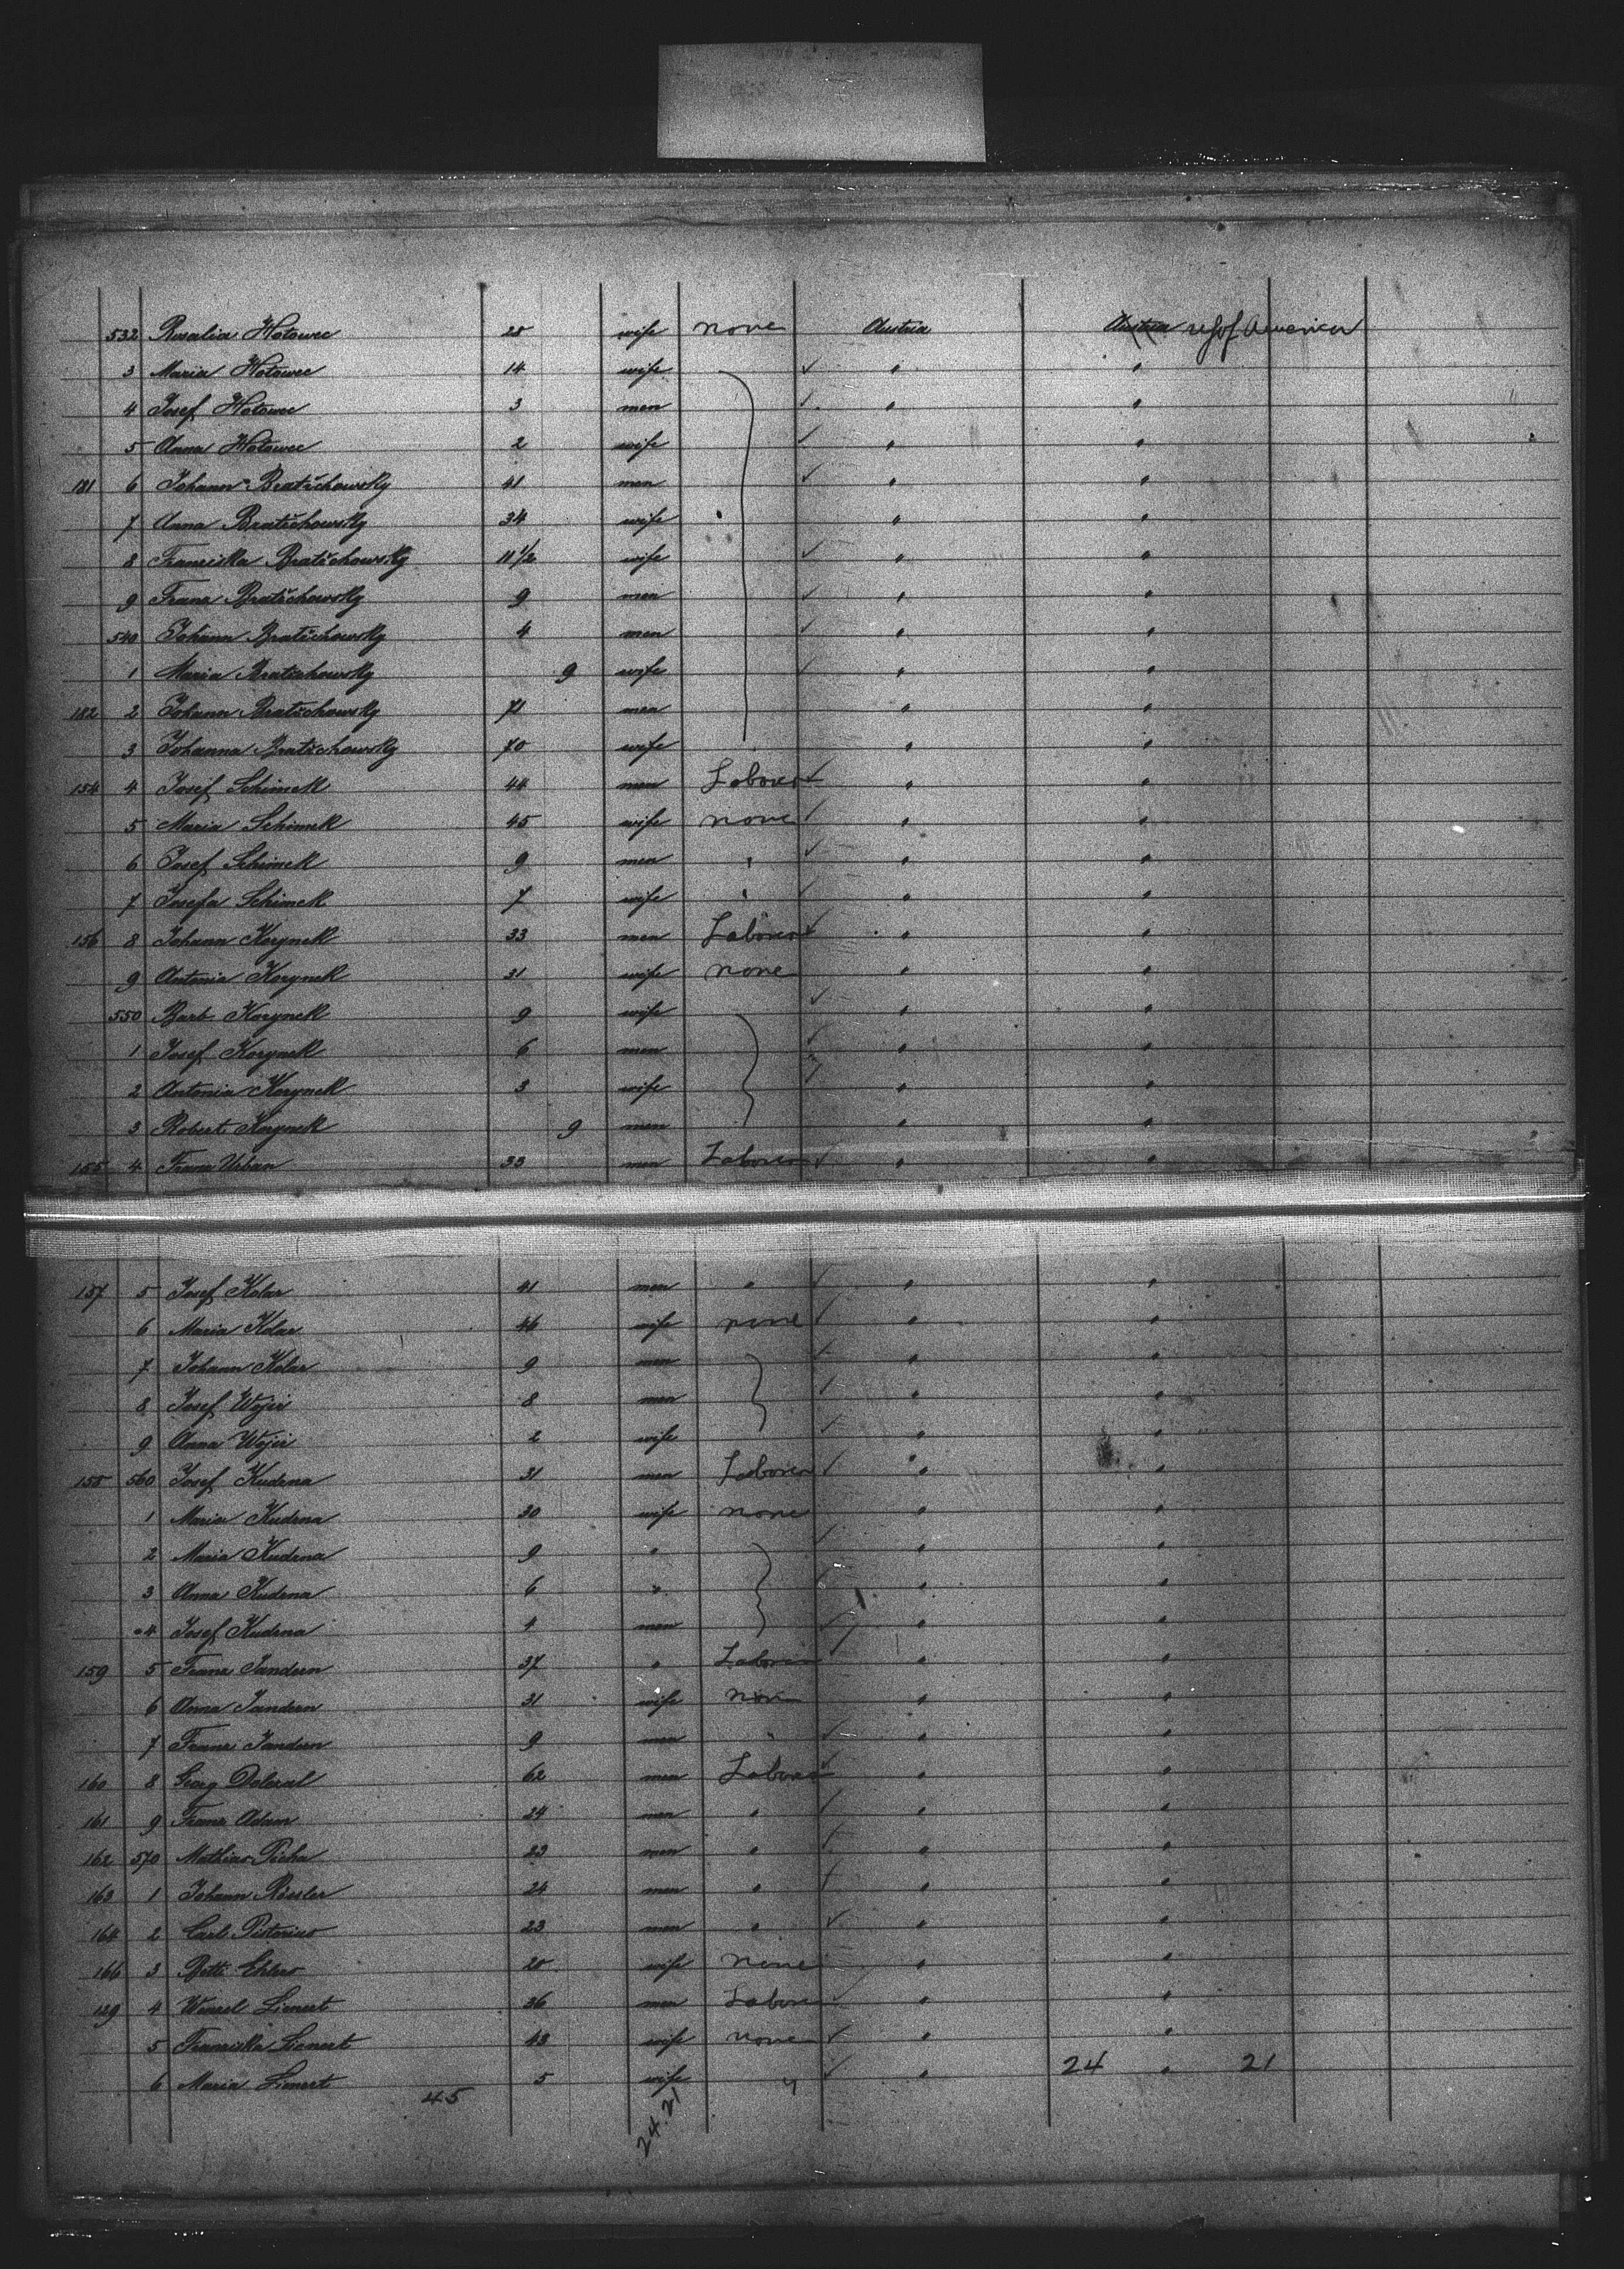 532 Rosalia Hotowec 28 wife none Austria Austria U S of America
3 Maria Hotowec 14 wife " "
4 Josef Hotowec 3 men " "
5 Anna Hotowec 2 wife " "
181 6 Johann Bratichowsky 41 men " "
7 Anna Bratichowsky 34 wife " "
8 Franziska Bratichowsky 11 1/2 wife " "
9 Franz Bratichowsky 9 men " "
540 Johann Bratichowsky 4 men " "
1 Maria Bratichowsky 9 wife " "
182 2 Johann Bratichowsky 71 men " "
3 Johanna Bratichowsky 70 wife " "
154 4 Josef Schimek 44 men Laborer " "
5 Maria Schimek 45 wife none " "
6 Josef Schimek 9 men " " "
7 Josefa Schimek 7 wife " " "
156 8 Johann Korynek 33 men Laborer " "
9 Antonia Korynek 31 wife none " "
550 Barb. Korynek 9 wife " "
1 Josef Korynek 6 men " "
2 Antonia Korynek 3 wife " "
3 Robert Korynek 9 men " "
155 4 Franz Urban 33 men Laborer " "
157 5 Josef Kolar 41 men " " "
6 Maria Kolar 46 wife none " "
7 Johann Kolar 9 men " "
8 Josef Wojir 8 men " "
9 Anna Wojir 2 wife " "
158 560 Josef Kudrna 31 men Laborer " "
1 Maria Kudrna 30 wife none " "
2 Maria Kudrna 9 " " "
3 Anna Kudrna 6 " " "
4 Josef Kudrna 4 men " "
159 5 Franz Jandern 37 " Laborer " "
6 Anna Jandern 31 wife none " "
7 Franz Jandern 9 men " " "
160 8 Georg Dolezal 62 men Laborer " "
161 9 Franz Adam 24 men " " "
162 570 Mathias Picha 23 men " " "
163 1 Johann Rössler 24 men " " "
164 2 Carl Pistorius 23 men " " "
166 3 Betti Ehler 20 wife none " "
129 4 Wenzel Lienert 36 men Laborer " "
5 Franziska Lienert 43 wife none " "
6 Maria Lienert 5 wife " " 24 " 21
45 24.21